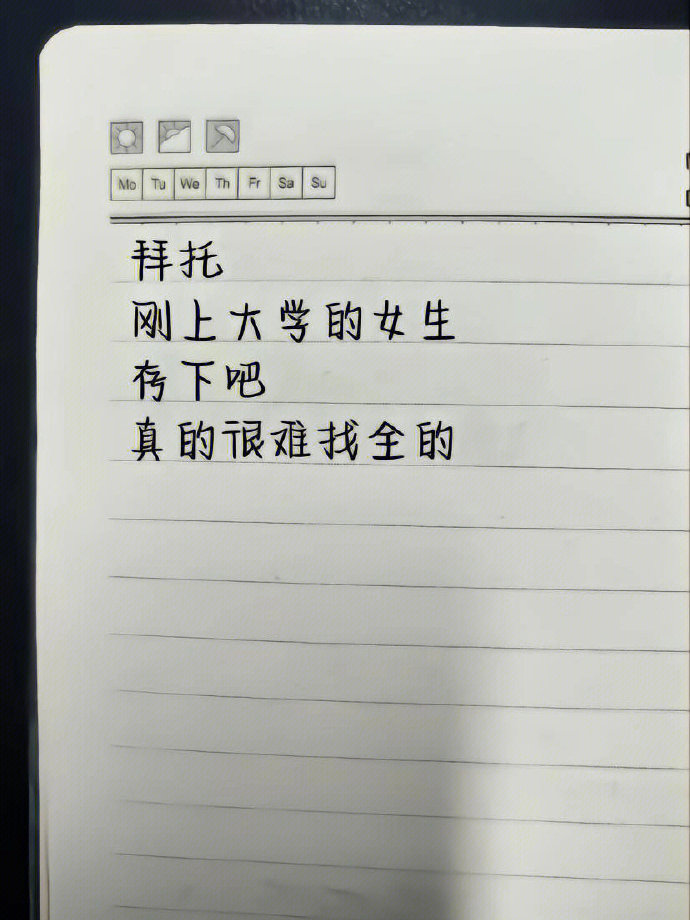 Mo Tu We Th Fr Sa Su
拜托
刚上大学的女生
存下吧
真的很难找全的